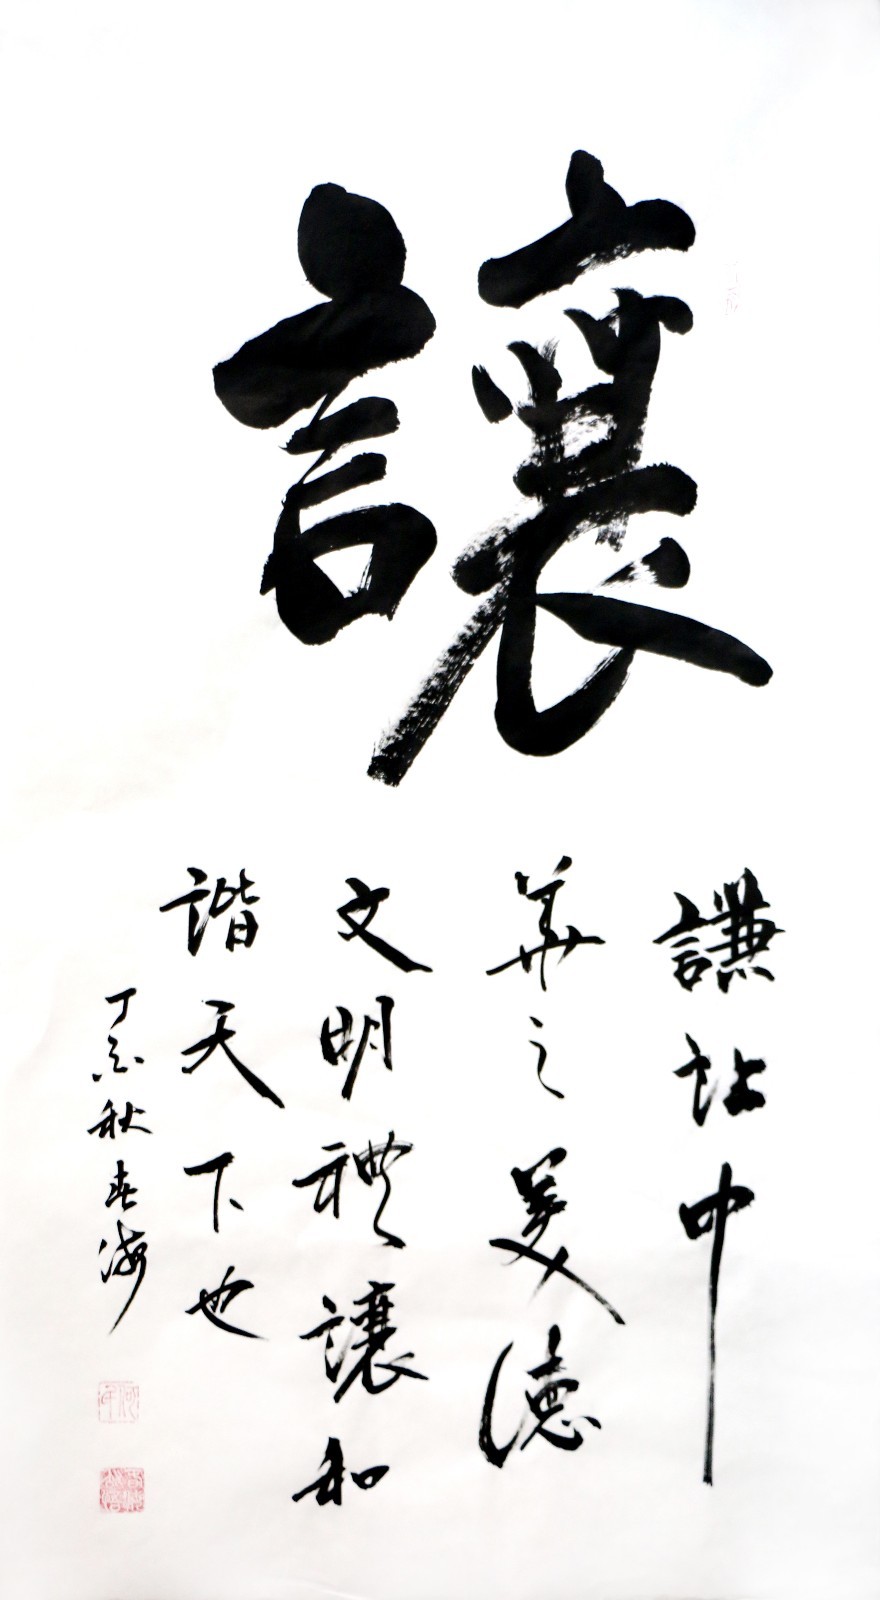 讓
謙让中
華之美德
文明禮讓和
諧天下也
丁亥秋春海